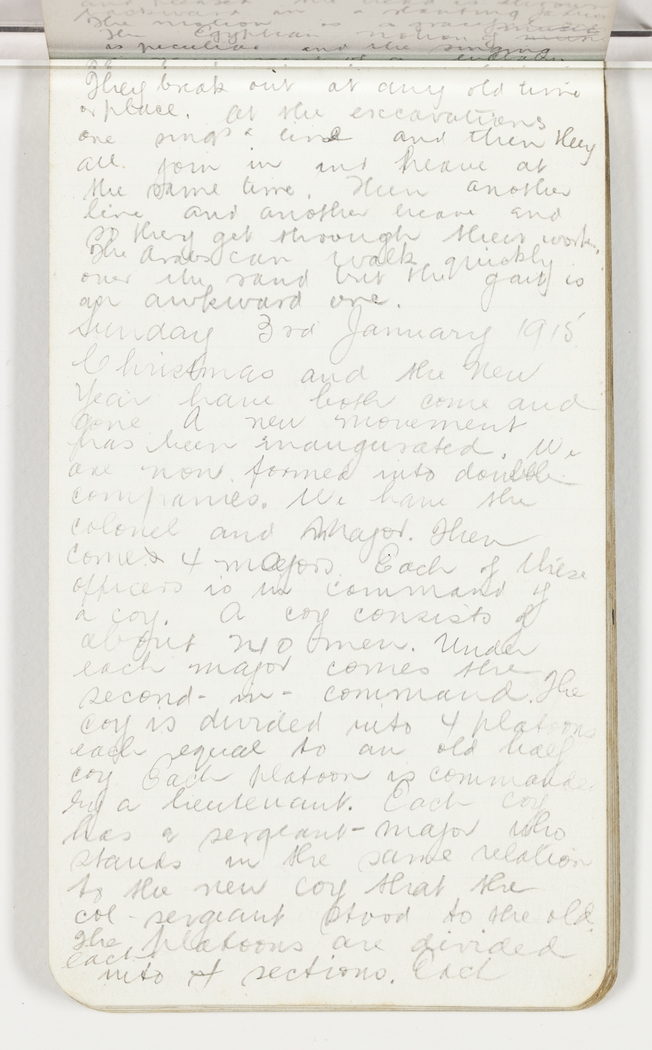 The motion is a graceful
The Egyptian notion of
is peculiar and the singing
They break out at any old time
or place. At the excavations
one sings a line and then they
all join in and heave at
the same time. Then another
line and another heave and
so they get through their work.
The Arabs can walk quickly
over the sand but their gait is
an awkward one.
Sunday 3rd January 1915
Christmas and the New
Year have both come and
gone A new movement
has been inaugurated. We
are now formed into double
companies. We have the
colonel and Major. Then
comes 4 majors. Each of these
officers is in command of
a coy. A coy consists of
about 240 men. Under
each major comes the
second-in-command. The
coy is divided into 4 platoons
each equal to an old half
coy Each platoon is commanded
by a lieutenant. Each coy
has a sergeant-major who
stands in the same relation
to the new coy that the
col-sergeant stood to the old.
The platoons are divided
each into 4 sections. Each